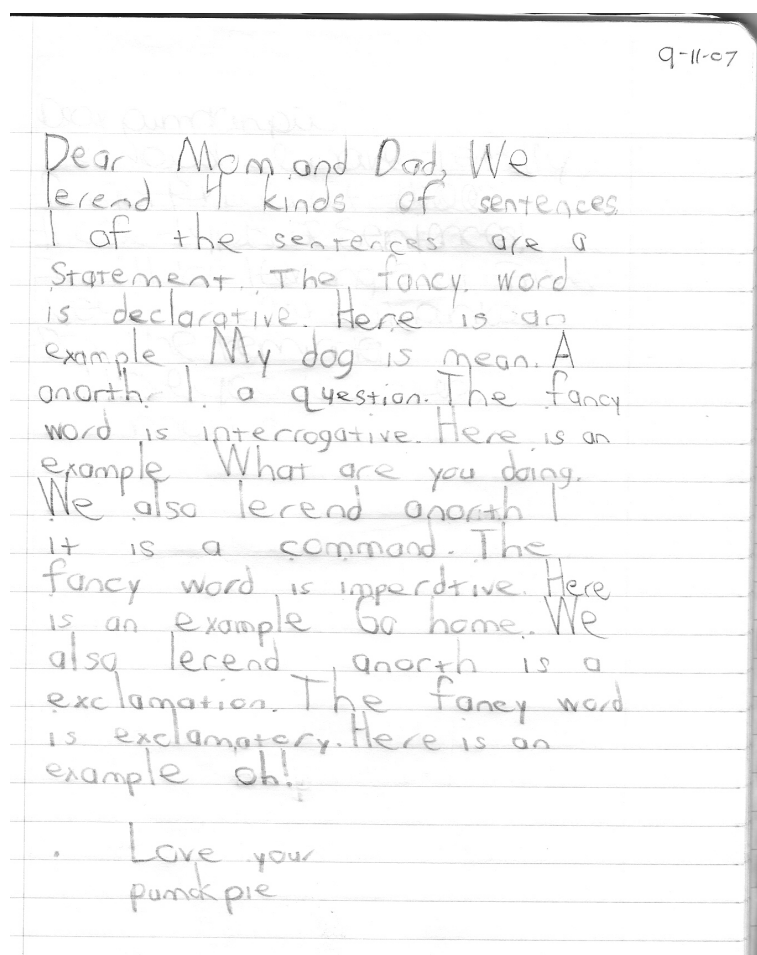 9-11-07
Dear Mom and Dad, We
lerend 4 kinds of sentences
1 of the sentences are a
Statement. The fancy word
is declarative. Here is an
example My dog is mean. A
anorth 1 a question. The fancy
word is interrogative. Here is an
example What are you doing.
We also lerend anorth 1
it is a command. The
fancy word is imperative. Here
is an example Go home. We
also lerend anorth is a
exclamation. The fancy word
is exclamatery. Here is an
example oh!
Love your
pumckpie